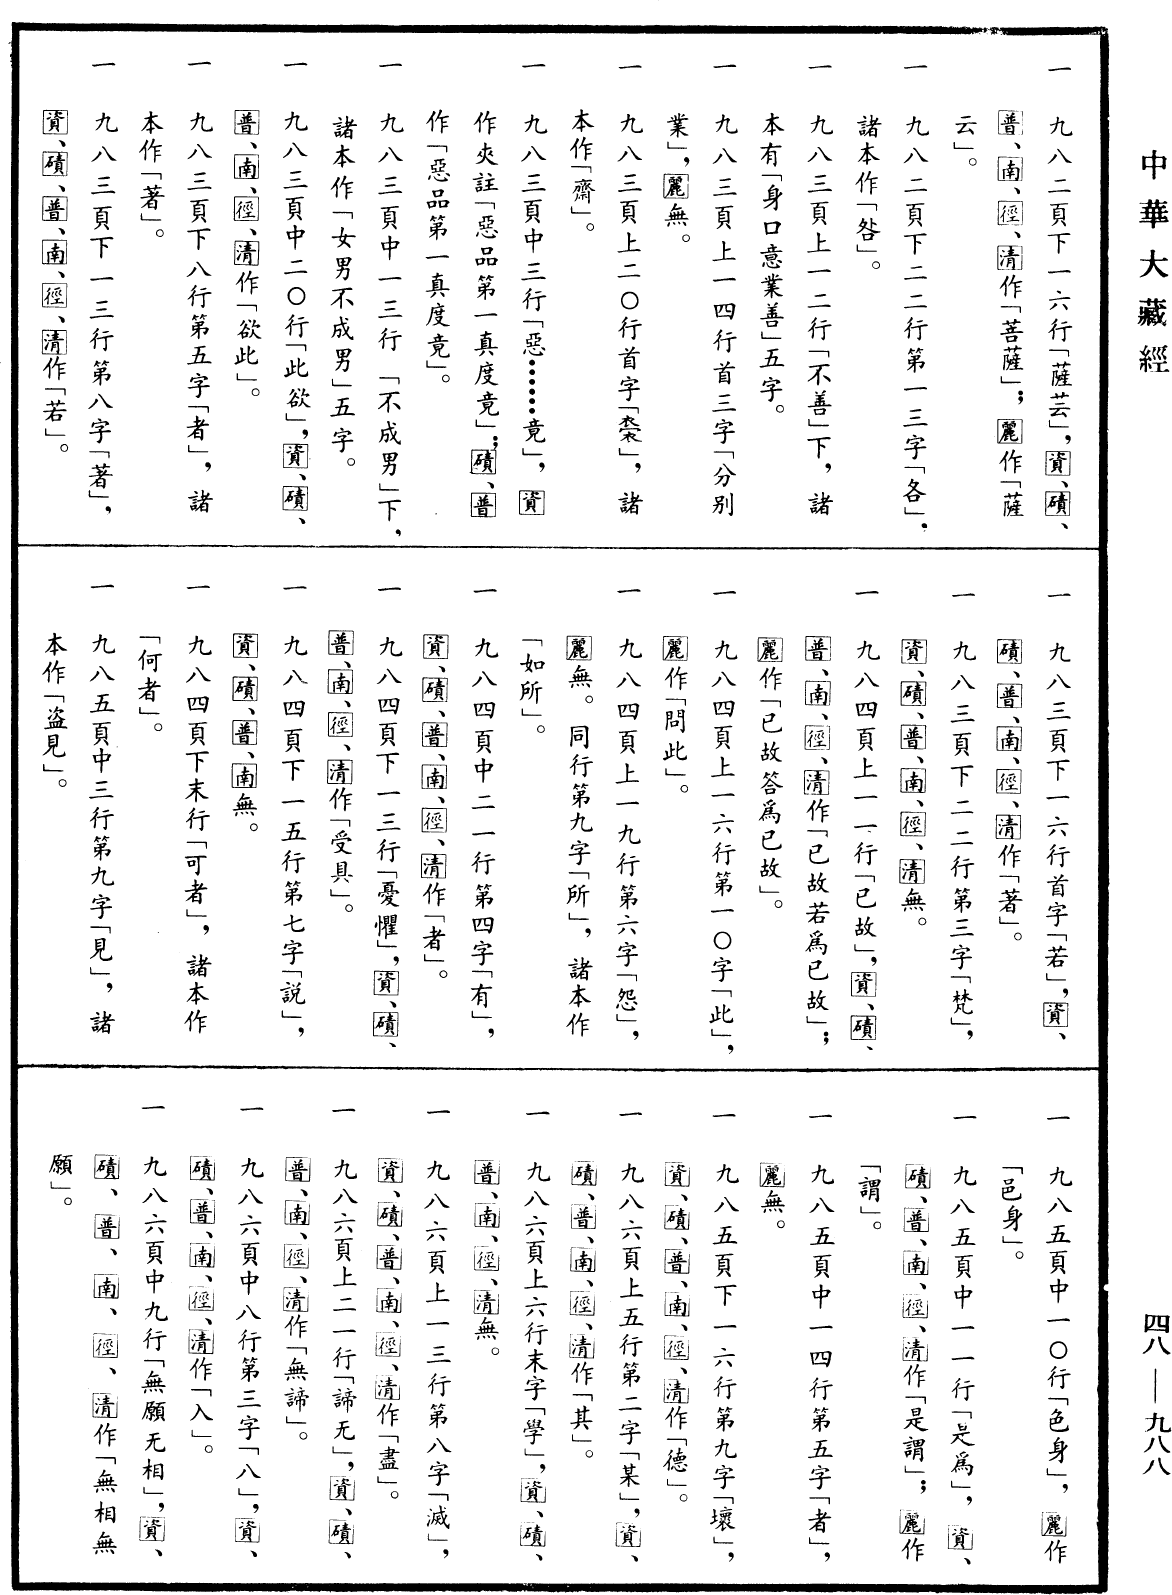 中華大藏經
一　九八二頁下一六行「薩芸」，資、磧、
普、南、徑、清作「菩薩」；麗作「薩
云」。
一　九八二頁下二二行第一三字「各」，
諸本作「咎」。
一　九八三頁上一二行「不善」下，諸
本有「身口意業善」五字。
一　九八三頁上一四行首三字「分別
業」，麗無。
一　九八三頁上二〇行首字「𧞓」，諸
本作「齋」。
一　九八三頁中三行「惡……竟」，資
作夾註「惡品第一真度竟」；磧、普
作「惡品第一真度竟」。
一　九八三頁中一三行「不成男」下，
諸本作「女男不成男」五字。
一　九八三頁中二〇行「此欲」，資、磧、
普、南、徑、清作「欲此」。
一　九八三頁下八行第五字「者」，諸
本作「著」。
一　九八三頁下一三行第八字「著」，
資、磧、普、南、徑、清作「若」。
一　九八三頁下一六行首字「若」，資、
磧、普、南、徑、清作「著」。
一　九八三頁下二二行第三字「梵」，
資、磧、普、南、徑、清無。
一　九八四頁上一一行「已故」，資、磧、
普、南、徑、清作「已故若為已故」；
麗作「已故答為已故」。
一　九八四頁上一六行第一〇字「此」，
麗作「問此」。
一　九八四頁上一九行第六字「怨」，
麗無。同行第九字「所」，諸本作
「如所」。
一　九八四頁中二一行第四字「有」，
資、磧、普、南、徑、清作「者」。
一　九八四頁下一三行「憂懼」，資、磧、
普、南、徑、清作「受具」。
一　九八四頁下一五行第七字「説」，
資、磧、普、南無。
一　九八四頁下末行「可者」，諸本作
「何者」。
一　九八五頁中三行第九字「見」，諸
本作「盜見」。
一　九八五頁中一〇行「色身」，麗作
「邑身」。
一　九八五頁中一一行「是為」，資、
磧、普、南、徑、清作「是謂」；麗作
「謂」。
一　九八五頁中一四行第五字「者」，
麗無。
一　九八五頁下一六行第九字「壞」，
資、磧、普、南、徑、清作「德」。
一　九八六頁上五行第二字「某」，資、
磧、普、南、徑、清作「其」。
一　九八六頁上六行末字「學」，資、磧、
普、南、徑、清無。
一　九八六頁上一三行第八字「滅」，
資、磧、普、南、徑、清作「盡」。
一　九八六頁上二一行「諦无」，資、磧、
普、南、徑、清作「無諦」。
一　九八六頁中八行第三字「八」，資、
磧、普、南、徑、清作「入」。
一　九八六頁中九行「無願无相」，資、
磧、普、南、徑、清作「無相無
願」。
四八——九八八